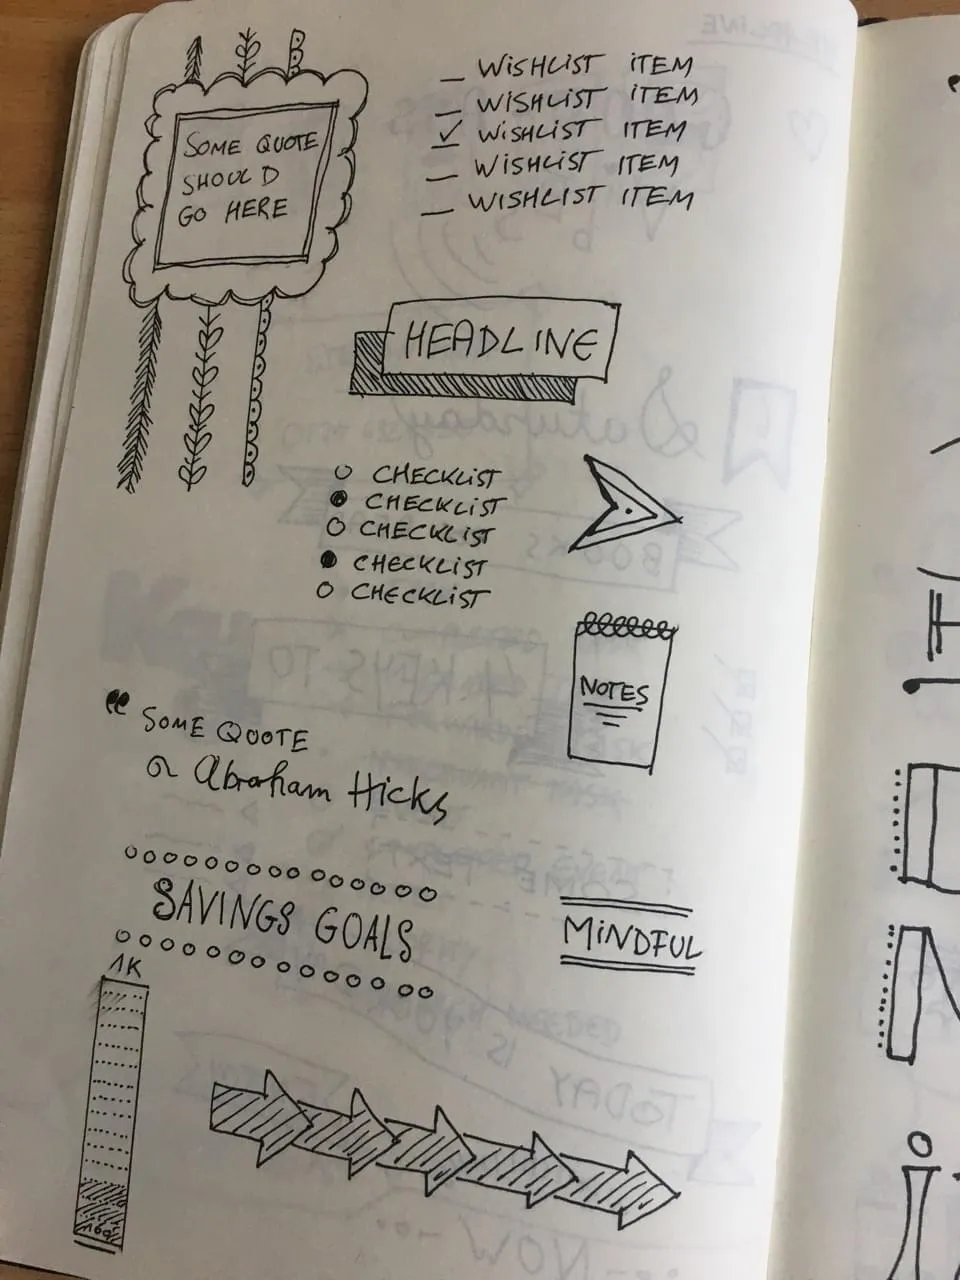 SOME QUOTE
SHOULD
GO HERE
_ WISHLIST ITEM
_ WISHLIST ITEM
✓ WISHLIST ITEM
_ WISHLIST ITEM
_ WISHLIST ITEM
HEADLINE
○ CHECKLIST
● CHECKLIST
○ CHECKLIST
● CHECKLIST
○ CHECKLIST
NOTES
“ SOME QUOTE
~ Abraham Hicks
SAVINGS GOALS
MINDFUL
1K
100